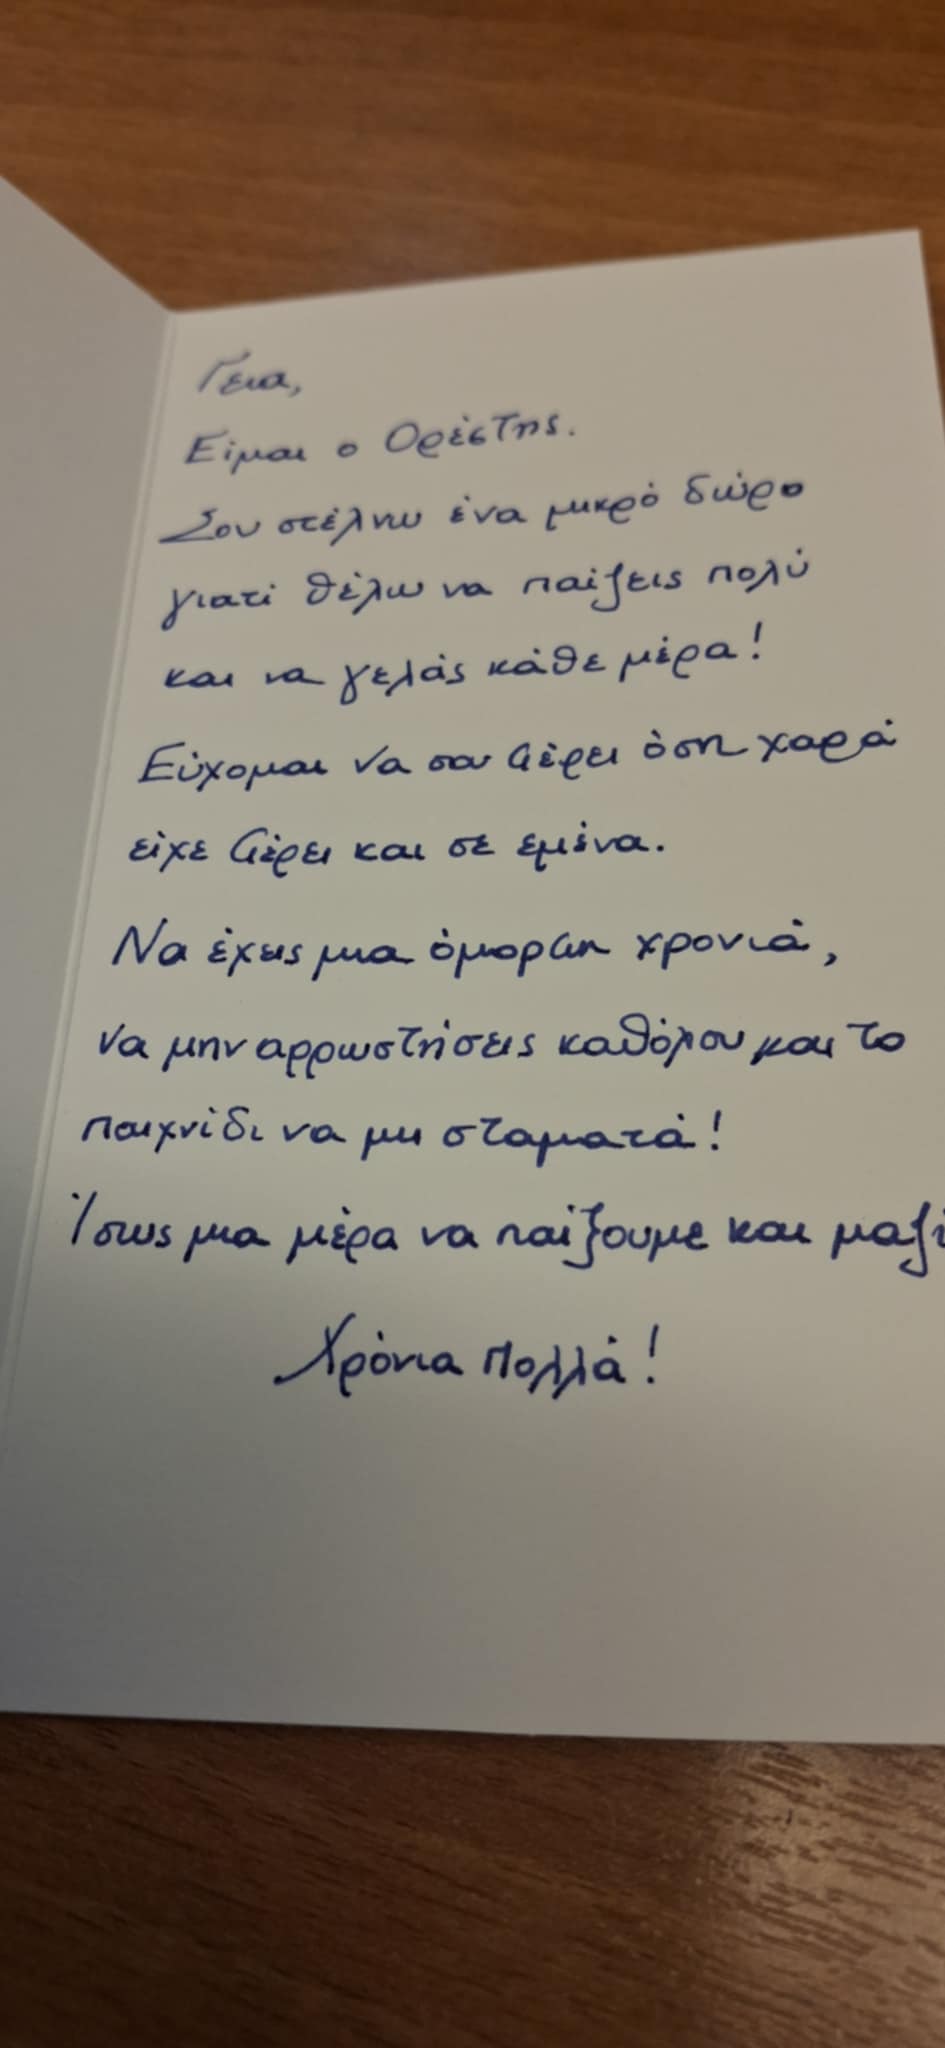 Γεια,
Είμαι ο Ορέστης.
Σου στέλνω ένα μικρό δώρο
γιατί θέλω να παίζεις πολύ
και να γελάς κάθε μέρα!
Εύχομαι να σου φέρει όση χαρά
είχε φέρει και σε εμένα.
Να έχεις μια όμορφη χρονιά,
να μην αρρωστήσεις καθόλου και το
παιχνίδι να μη σταματά!
Ίσως μια μέρα να παίξουμε και μαζί
Χρόνια πολλά!